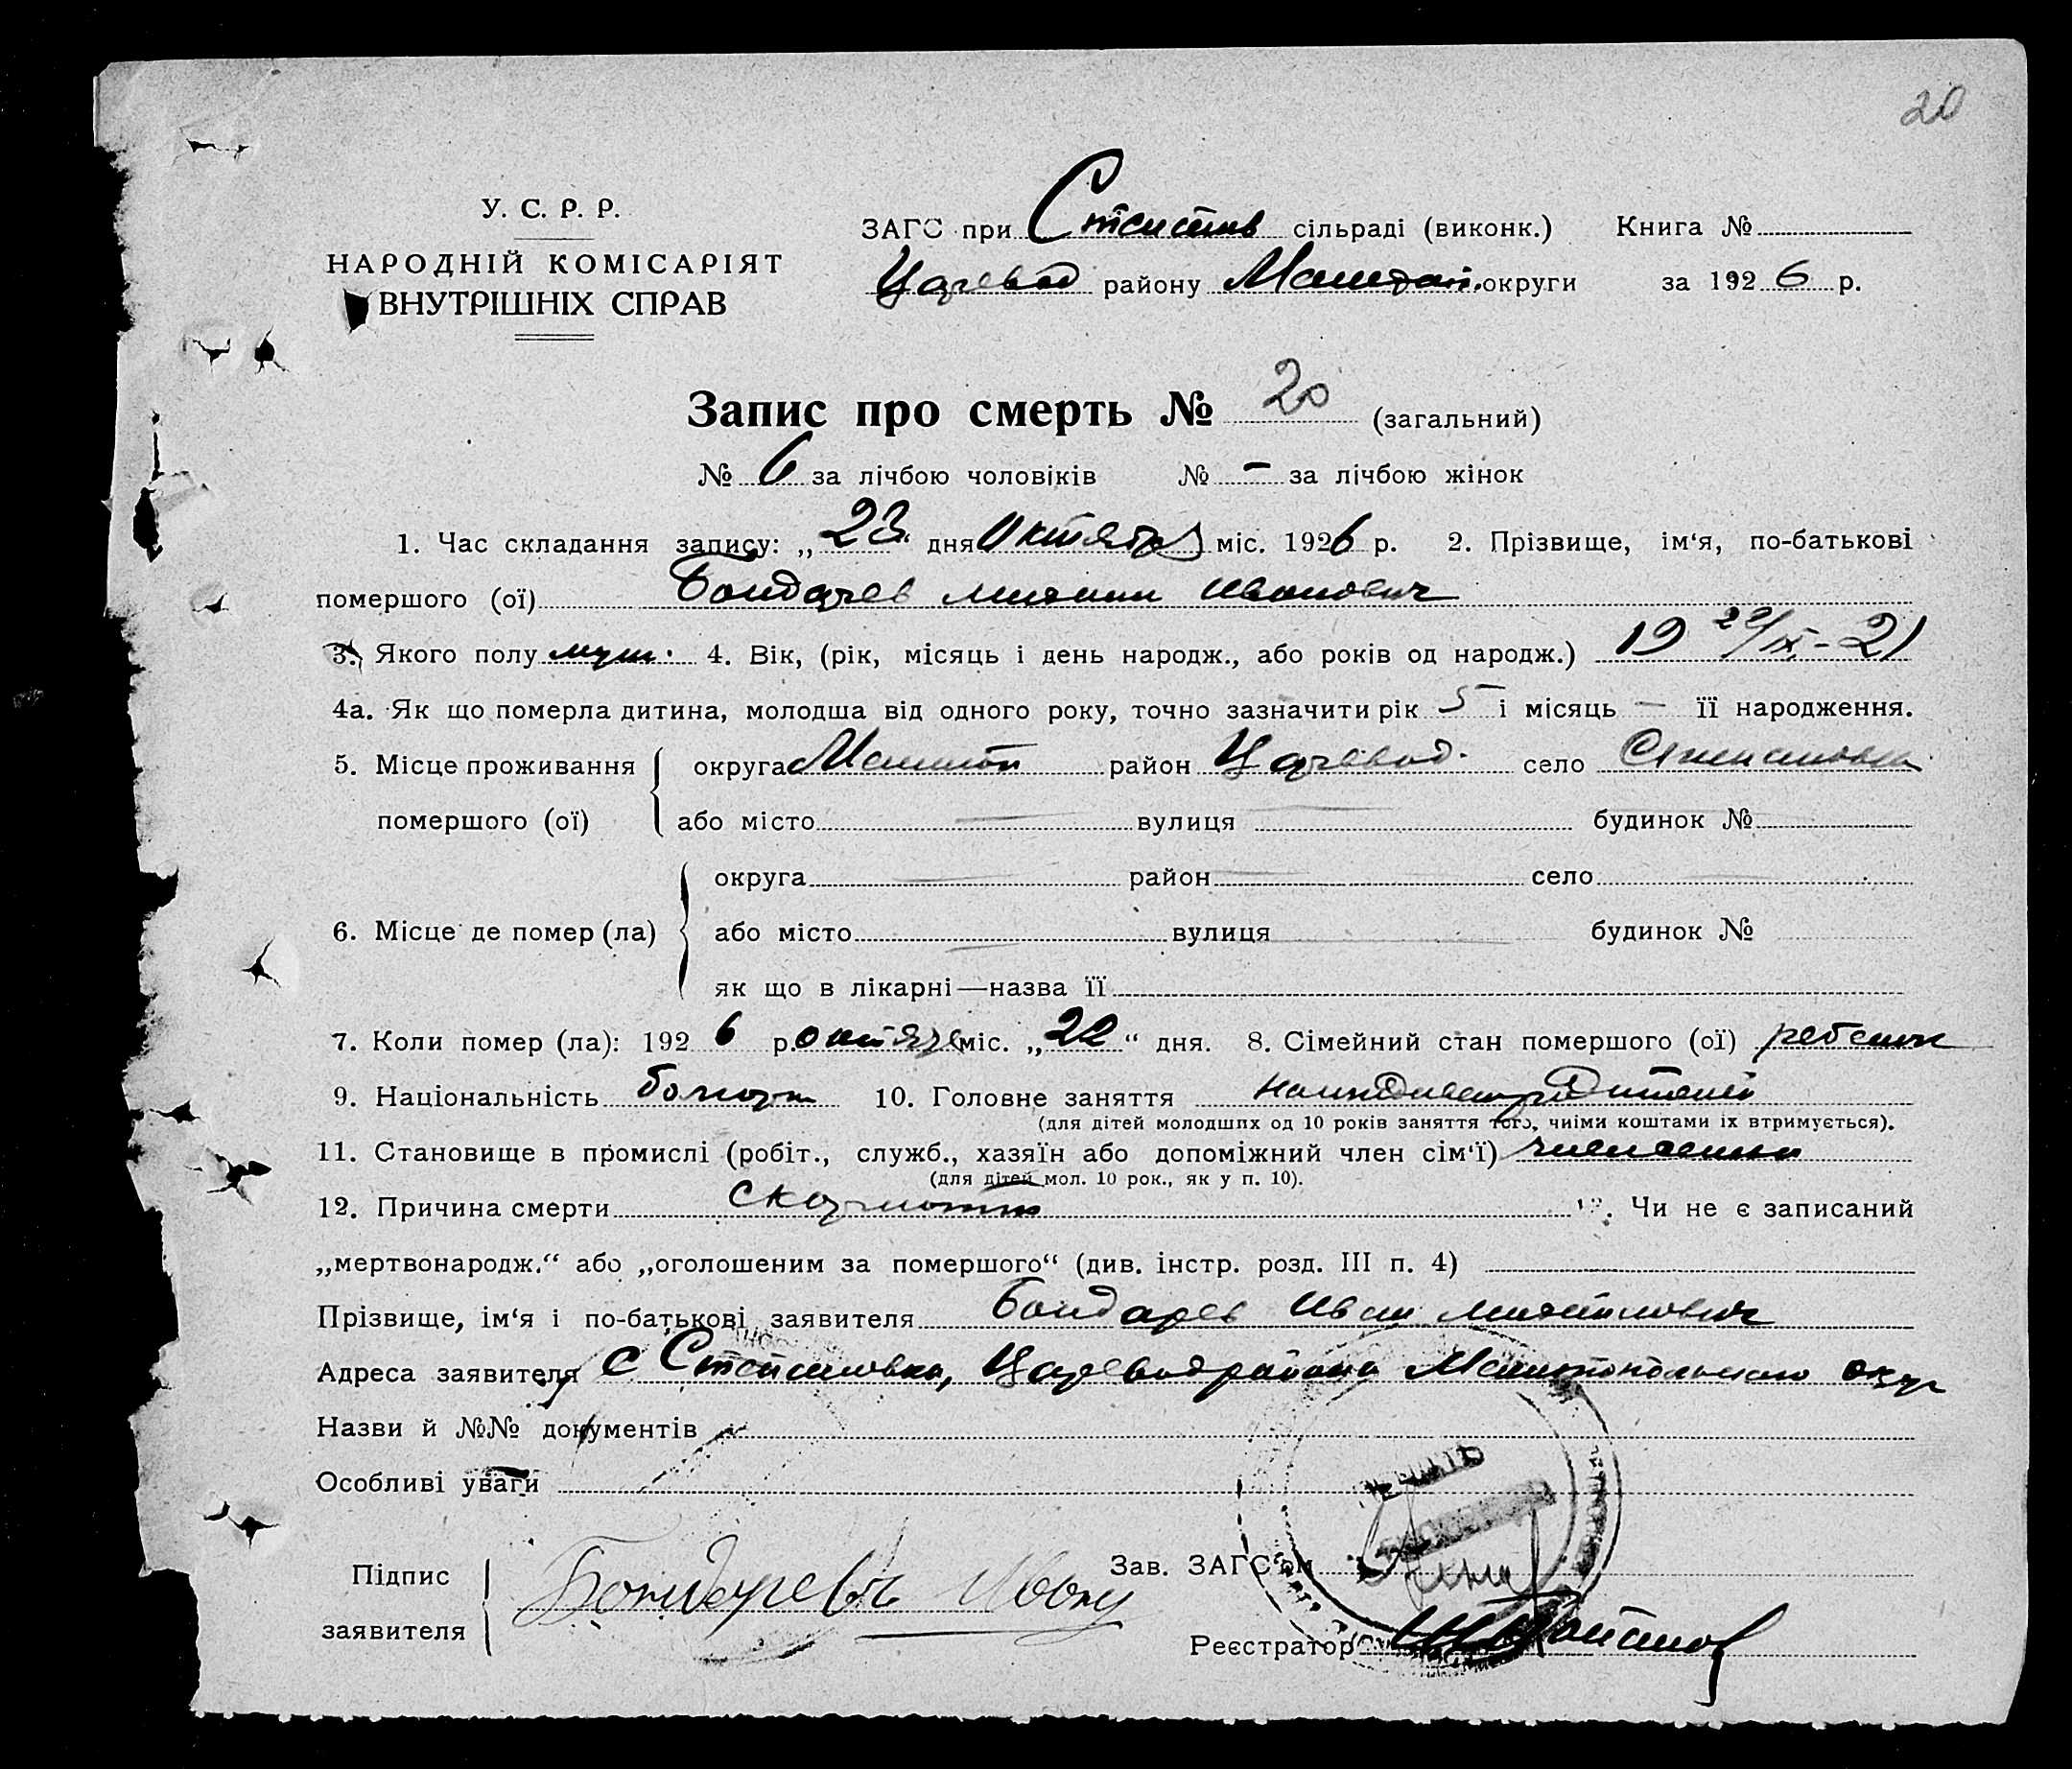 20
У. С. Р. Р.
НАРОДНІЙ КОМІСАРІЯТ
ВНУТРІШНІХ СПРАВ
ЗАГС при сільраді (виконк.) Книга №
Царевод району округи за 1926 р.
Запис про смерть № 20 (загальний)
№ 6 за лічбою чоловіків № – за лічбою жінок
1. Час складання запису: „23“ дня Октября міс. 1926 р. 2. Прізвище, ім‘я, по-батькові
помершого (ої) Бондарев Иванович
3. Якого полу муж. 4. Вік, (рік, місяць і день народж., або років од народж.) 19 22/IX-21
4а. Як що померла дитина, молодша від одного року, точно зазначити рік 5 і місяць — її народження.
5. Місце проживання округа район Царевод. село Степановка
помершого (ої) або місто — вулиця — будинок №
округа — район — село —
6. Місце де помер (ла) або місто — вулиця — будинок №
як що в лікарні—назва її
7. Коли помер (ла): 1926 р. октяря міс. „22“ дня. 8. Сімейний стан помершого (ої) ребенок
9. Національність болгар 10. Головне заняття
(для дітей молодших од 10 років заняття того, чиїми коштами їх втримується).
11. Становище в промислі (робіт., служб., хазяїн або допоміжний член сім‘ї)
(для дітей мол. 10 рок., як у п. 10).
12. Причина смерти 13. Чи не є записаний
„мертвонародж.“ або „оголошеним за помершого“ (див. інстр. розд. III п. 4)
Прізвище, ім‘я і по-батькові заявителя Бондарев Иван
Адреса заявителя с Степановка, Царевод района Мелитопольского окр
Назви й №№ документів
Особливі уваги
Підпис
заявителя
Бондаревъ Иван
Зав. ЗАГС‘ом
Реєстратор